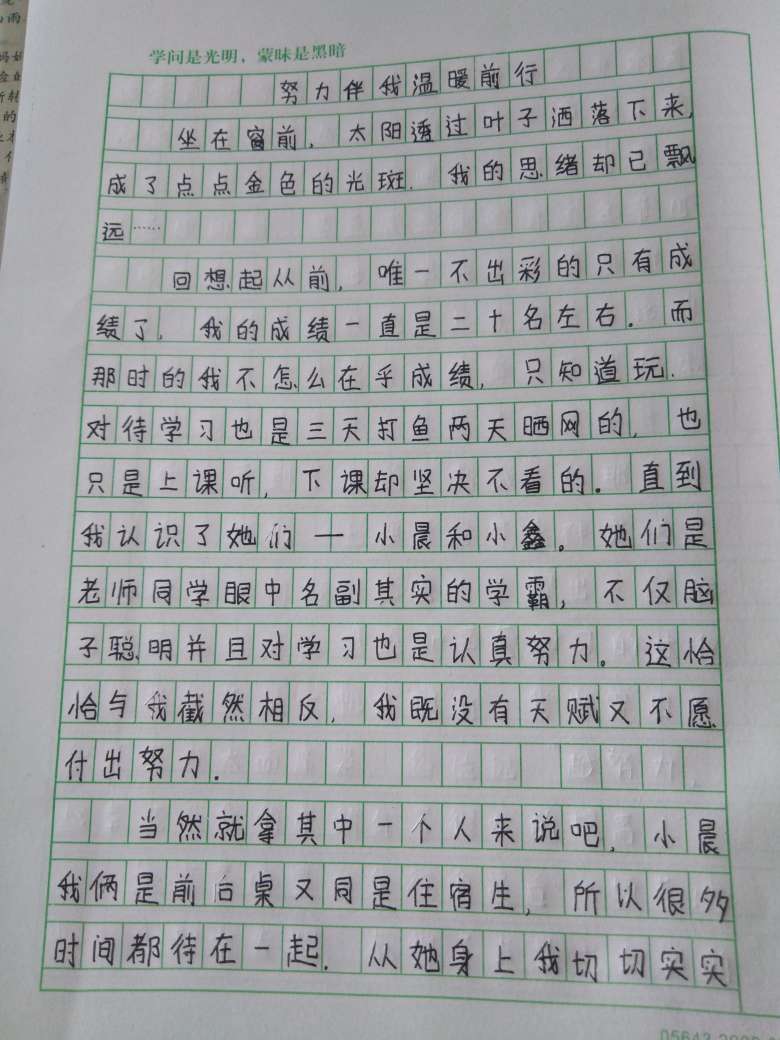 学问是光明，蒙昧是黑暗
努力伴我温暖前行
坐在窗前，太阳透过叶子洒落下来，
成了点点金色的光斑．我的思绪却已飘
远……
回想起从前，唯一不出彩的只有成
绩了．我的成绩一直是二十名左右．而
那时的我不怎么在乎成绩，只知道玩．
对待学习也是三天打鱼两天晒网的，也
只是上课听，下课却坚决不看的．直到
我认识了她们——小晨和小鑫。她们是
老师同学眼中名副其实的学霸，不仅脑
子聪明并且对学习也是认真努力。这恰
恰与我截然相反，我既没有天赋又不愿
付出努力．
当然就拿其中一个人来说吧，小晨
我俩是前后桌又同是住宿生，所以很多
时间都待在一起．从她身上我切切实实